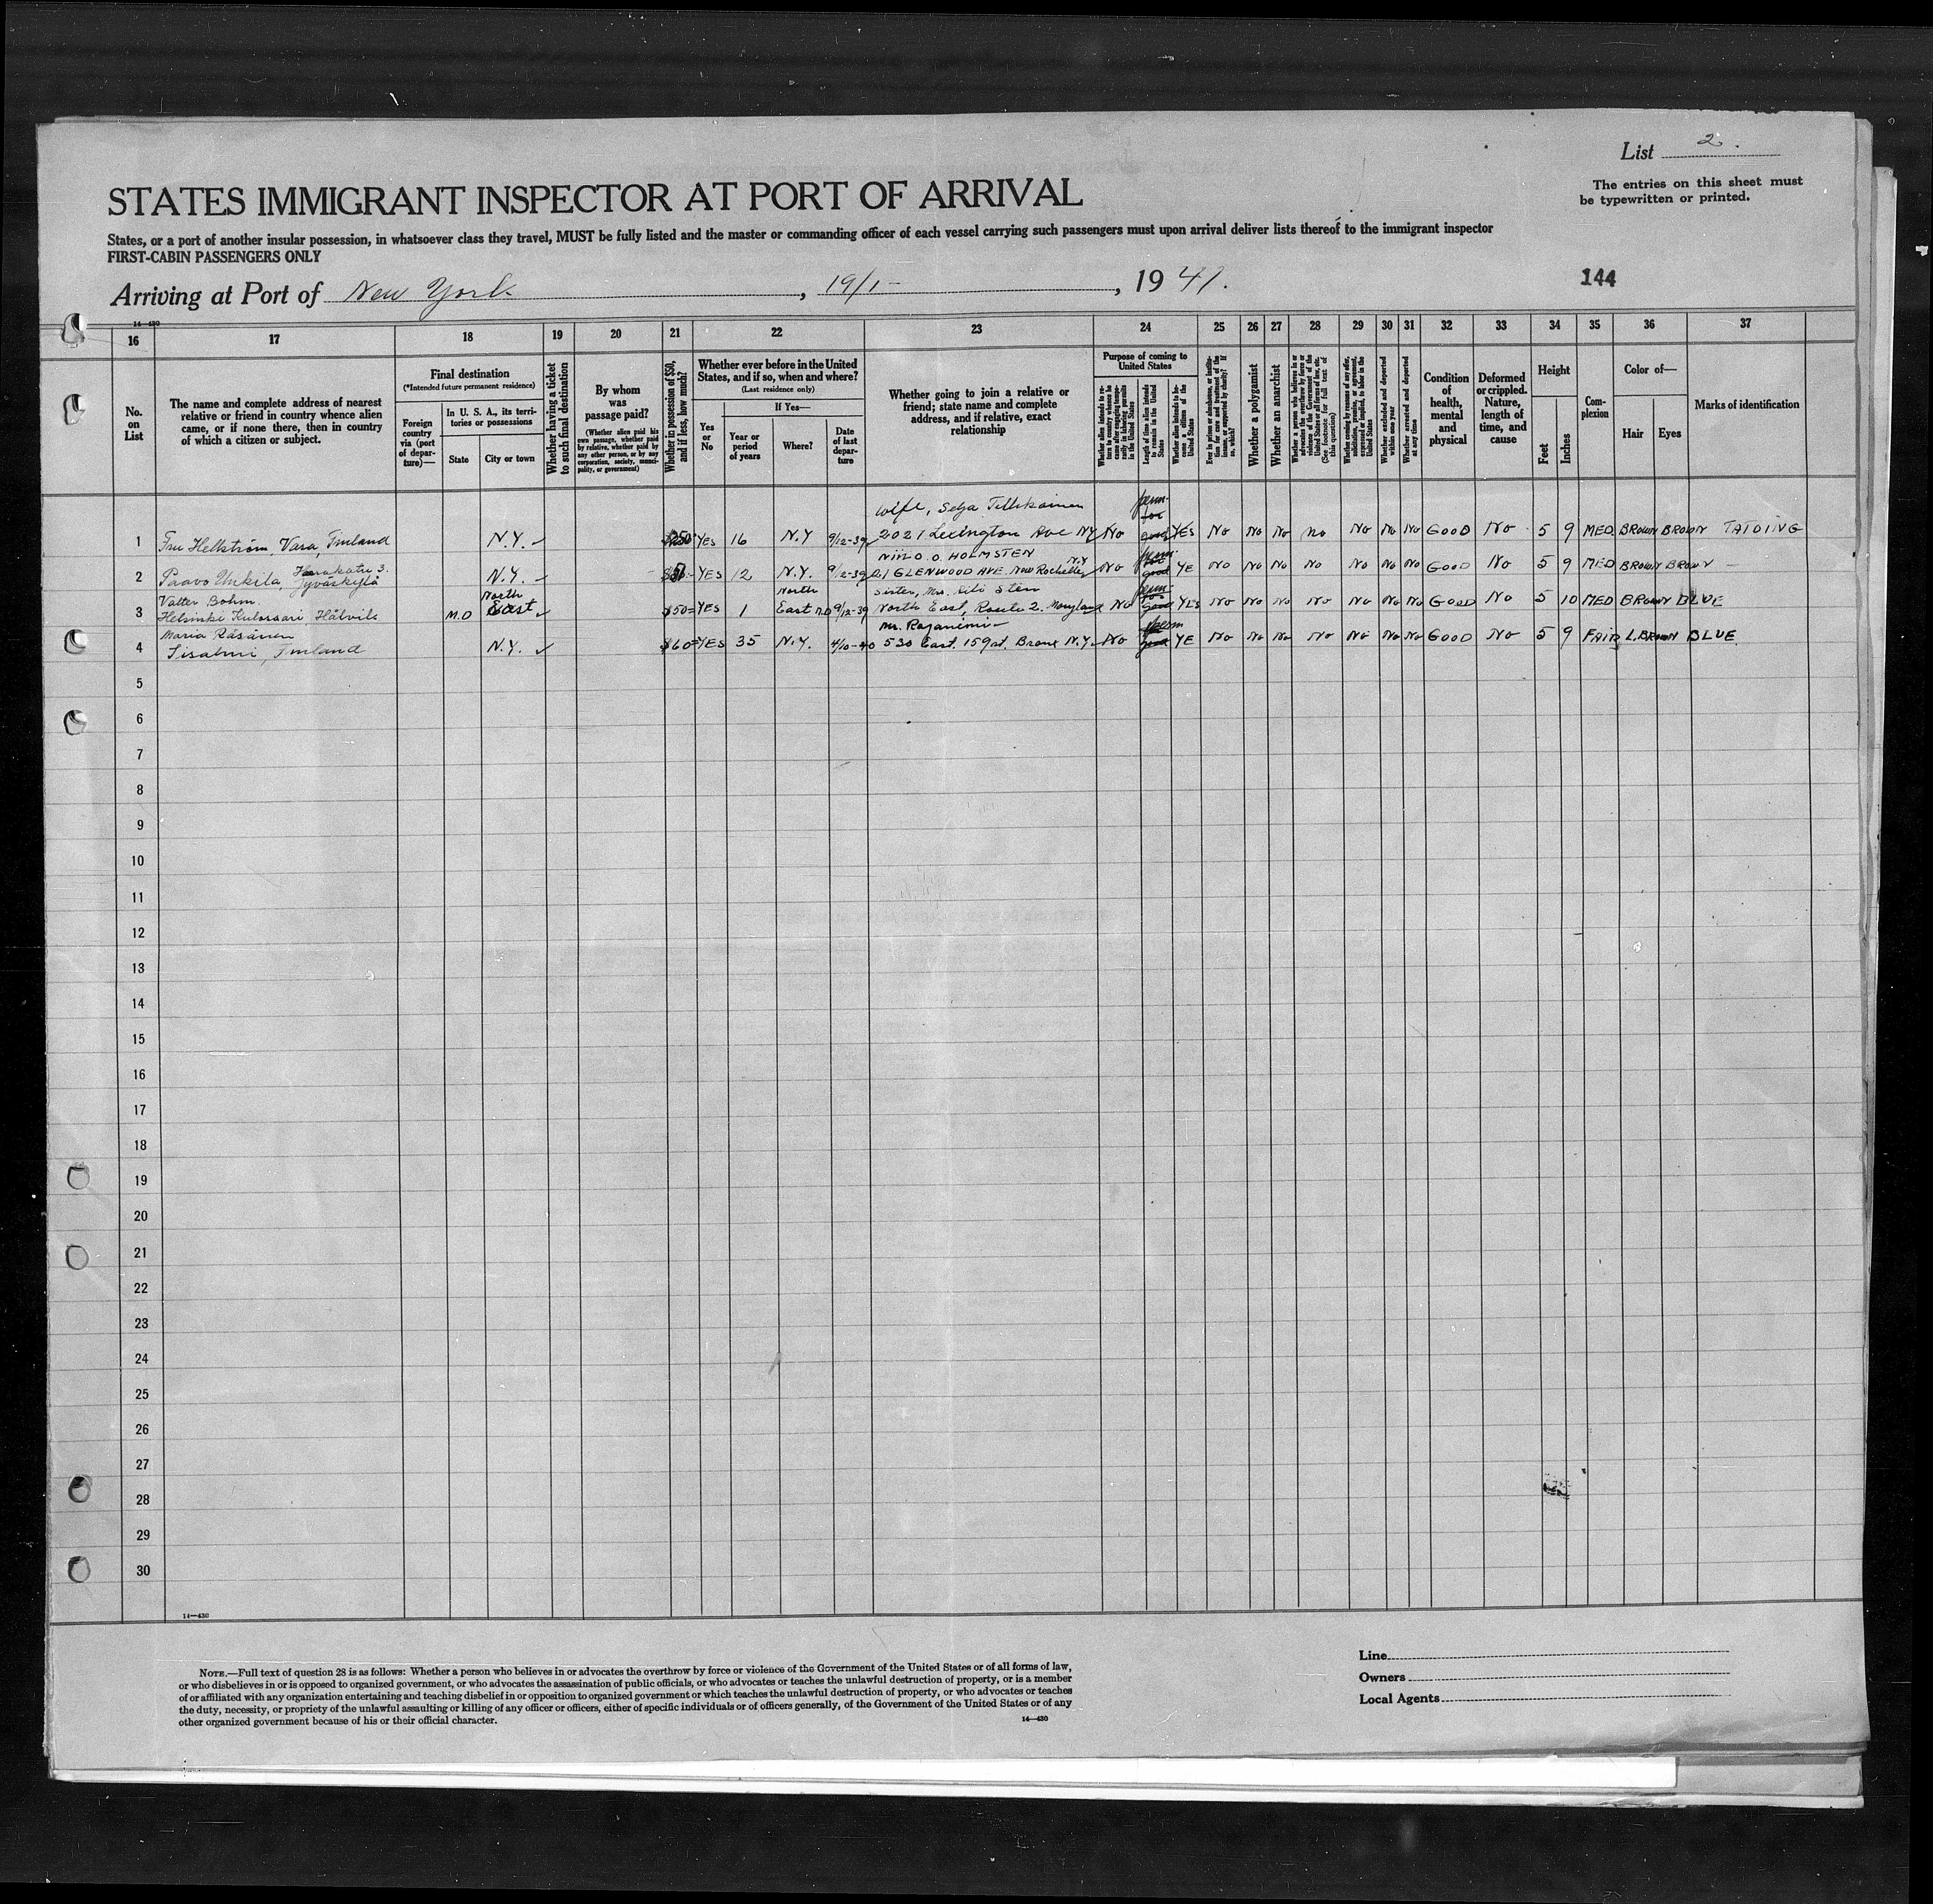 List 2.
The entries on this sheet must
be typewritten or printed.
STATES IMMIGRANT INSPECTOR AT PORT OF ARRIVAL
States, or a port of another insular possession, in whatsoever class they travel, MUST be fully listed and the master or commanding officer of each vessel carrying such passengers must upon arrival deliver lists thereof to the immigrant inspector
FIRST-CABIN PASSENGERS ONLY
Arriving at Port of New York, 19/1-, 1941.
144
14-430
16 17 18 19 20 21 22 23 24 25 26 27 28 29 30 31 32 33 34 35 36 37
No. on List
The name and complete address of nearest relative or friend in country whence alien came, or if none there, then in country of which a citizen or subject.
Final destination
(*Intended future permanent residence)
Foreign country via (port of departure)—
In U. S. A., its territories or possessions
State
City or town
Whether having a ticket to such final destination
By whom was passage paid?
(Whether alien paid his own passage, whether paid by relative, whether paid by any other person, or by any corporation, society, municipality, or government)
Whether in possession of $50, and if less, how much?
Whether ever before in the United States, and if so, when and where?
(Last residence only)
Yes or No
If Yes—
Year or period of years
Where?
Date of last departure
Whether going to join a relative or friend; state name and complete address, and if relative, exact relationship
Purpose of coming to United States
Whether alien intends to return to country whence he came after engaging temporarily in laboring pursuits in the United States
Length of time alien intends to remain in the United States
Whether alien intends to become a citizen of the United States
Ever in prison or almshouse, or institution for care and treatment of the insane, or supported by charity? If so, which?
Whether a polygamist
Whether an anarchist
Whether a person who believes in or advocates the overthrow by force or violence of the Government of the United States or all forms of law, etc. (See footnote for full text of this question)
Whether coming by reason of any offer, solicitation, promise, or agreement, expressed or implied, to labor in the United States
Whether excluded and deported within one year
Whether arrested and deported at any time
Condition of health, mental and physical
Deformed or crippled. Nature, length of time, and cause
Height
Feet
Inches
Complexion
Color of—
Hair
Eyes
Marks of identification
wife, Selja Tillikainen perm.
1 Fru Hellström, Vasa, Finland N.Y. YES 16 N.Y 9/12-39 2021 Lexington Ave NY No YES No No No No No No No GOOD No 5 9 MED BROWN BROWN TATOING
NIILO O. HOLMSTEN N.Y perm.
2 Paavo Urkila, Harukatu 3. Jyväskylä N.Y. YES 12 N.Y. 9/12-39 21 GLENWOOD AVE New Rochelle No good YE No No No No No No No GOOD No 5 9 MED BROWN BROWN —
Valter Bohm. North North Sister, Mrs. Sten perm.
3 Helsinki Kulosaari Hälvik M.D East $50= YES 1 East M.D 9/12-39 North East, Route 2. Maryland No good YES No No No No No No No GOOD No 5 10 MED BROWN BLUE
Maria Räsänen Mr. Rajaniemi perm
4 Iisalmi, Finland N.Y. $60= YES 35 N.Y. 4/10-40 530 East. 159 st. Bronx N.Y. No good YE No No No No No No No GOOD No 5 9 FAIR L.BROWN BLUE
5
6
7
8
9
10
11
12
13
14
15
16
17
18
19
20
21
22
23
24
25
26
27
28
29
30
14-430
NOTE.—Full text of question 28 is as follows: Whether a person who believes in or advocates the overthrow by force or violence of the Government of the United States or of all forms of law,
or who disbelieves in or is opposed to organized government, or who advocates the assassination of public officials, or who advocates or teaches the unlawful destruction of property, or is a member
of or affiliated with any organization entertaining and teaching disbelief in or opposition to organized government or which teaches the unlawful destruction of property, or who advocates or teaches
the duty, necessity, or propriety of the unlawful assaulting or killing of any officer or officers, either of specific individuals or of officers generally, of the Government of the United States or of any
other organized government because of his or their official character.
14-430
Line
Owners
Local Agents